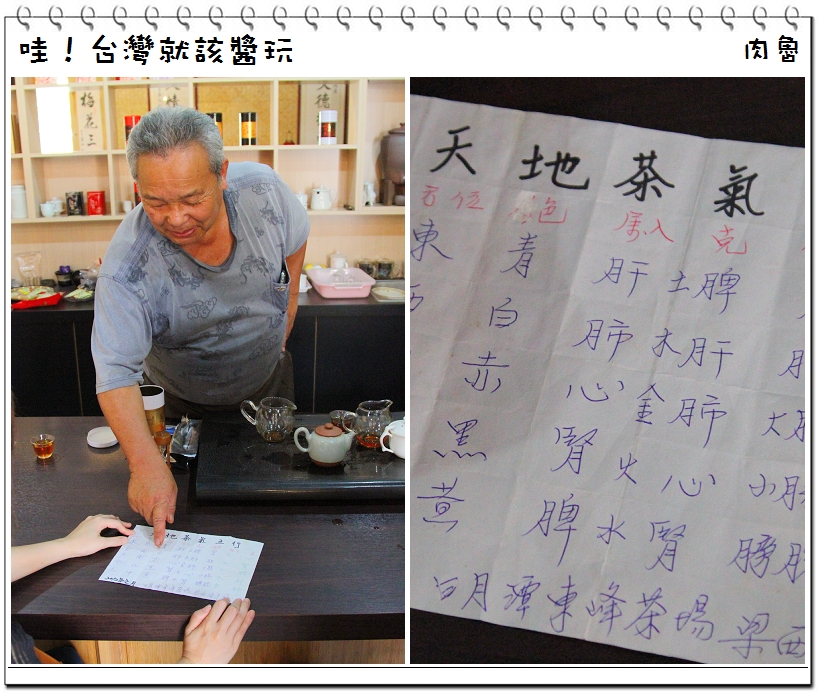 哇！台灣就該醬玩
肉魯
梅花三
地茶氣五行
天地茶氣
方位 色 屬入 克
東 青 肝 土脾
西 白 肺 木肝
赤 心 金肺 大
黑 腎 火心 小
黃 脾 水腎 膀
日月潭東峰茶場 梁西